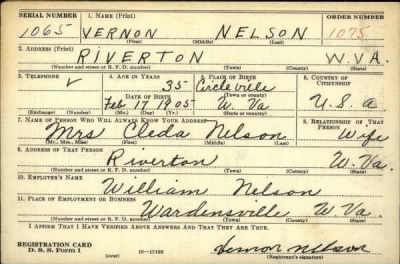 SERIAL NUMBER 1. NAME (Print) ORDER NUMBER
1065 VERNON NELSON 1075
(First) (Middle) (Last)
2. ADDRESS (Print)
RIVERTON W.VA.
(Number and street or R. F. D. number) (Town) (County) (State)
3. TELEPHONE 4. AGE IN YEARS 5. PLACE OF BIRTH 6. COUNTRY OF CITIZENSHIP
35 Circleville
DATE OF BIRTH (Town or county)
Feb 17 1905 W. Va U.S.a.
(Exchange) (Number) (Mo.) (Day) (Yr.) (State or country)
7. NAME OF PERSON WHO WILL ALWAYS KNOW YOUR ADDRESS 8. RELATIONSHIP OF THAT PERSON
Mrs Cleda Nelson Wife
(Mr., Mrs., Miss) (First) (Middle) (Last)
9. ADDRESS OF THAT PERSON
Riverton W. Va.
(Number and street or R. F. D. number) (Town) (County) (State)
10. EMPLOYER'S NAME
William Nelson
11. PLACE OF EMPLOYMENT OR BUSINESS
Wardensville W Va.
(Number and street or R. F. D. number) (Town) (County) (State)
I AFFIRM THAT I HAVE VERIFIED ABOVE ANSWERS AND THAT THEY ARE TRUE.
REGISTRATION CARD
D. S. S. Form 1 (over) Vernon Nelson
(Registrant's signature)